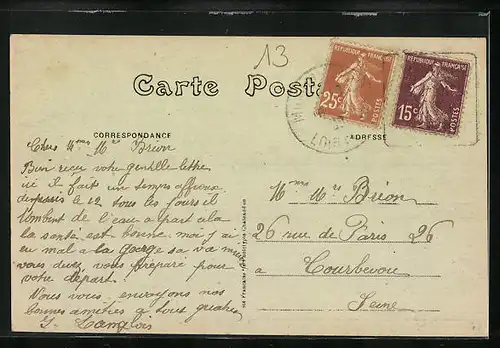 13
Carte Postale
RÉPUBLIQUE FRANÇAISE
25c
POSTES
RÉPUBLIQUE FRANÇAISE
15c
POSTES
CORRESPONDANCE
ADRESSE
Chers Mmes Mrs Brion
Bien reçu votre gentille lettre
ici il fait un temps affreux
depuis le 12 tous les jours il
tombent de l'eau a part cela
la santé est bonne moi j'ai
eu mal a la gorge sa va mieux
vous divez vous préparé pour
votre départ.
Nous vous envoyons nos
bonnes amitiés a tous quatre
Langlois
Mmes Mrs Brion
26 rue de Paris 26
a Courbevoie
Seine